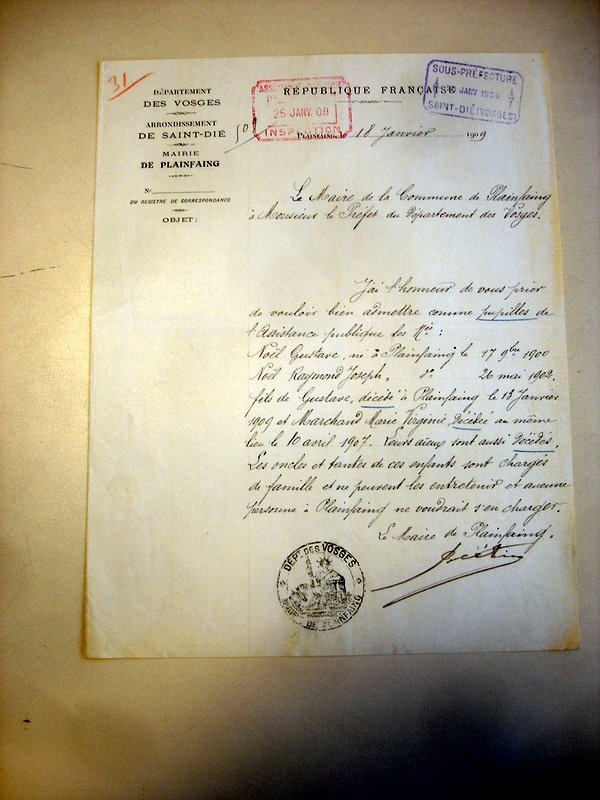 31
DÉPARTEMENT
DES VOSGES
ARRONDISSEMENT
DE SAINT-DIÉ
MAIRIE
DE PLAINFAING
N°
DU REGISTRE DE CORRESPONDANCE
OBJET :
RÉPUBLIQUE FRANÇAISE
25 JANV. 09
INSPECTION
SOUS-PRÉFECTURE
JANV 1909
SAINT-DIÉ (VOSGES)
PLAINFAING, le 18 Janvier 1909
Le Maire de la Commune de Plainfaing
à Monsieur le Préfet du Département des Vosges.
J'ai l'honneur de vous prier
de vouloir bien admettre comme pupilles de
l'Assistance publique les :
Noël Gustave, né à Plainfaing le 17 9bre 1900
Noël Raymond Joseph, d° 26 mai 1902,
fils de Gustave, décédé à Plainfaing le 13 Janvier
1909 et Marchand Marie Virginie, décédée au même
lieu le 10 avril 1907. Leurs aïeux sont aussi décédés.
Les oncles et tantes de ces enfants sont chargés
de famille et ne peuvent les entretenir et aucune
personne à Plainfaing ne voudrait s'en charger.
Le Maire de Plainfaing,
DÉPT DES VOSGES
MAIRIE DE PLAINFAING